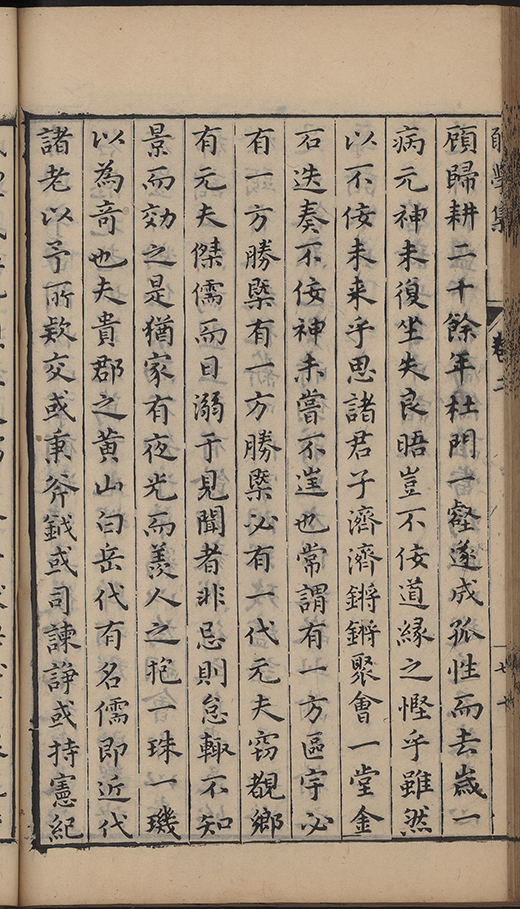 顧歸耕二千餘年杜門一壑遂成孤性而去歲一
病元神未復坐失良晤豈不佞道緣之慳乎雖然
以不佞未来乎思諸君子濟濟鏘鏘聚會一堂金
石迭奏不佞神未嘗不逞也常謂有一方區宇必
有一方勝槩有一方勝槩必有一代元夫竊覩鄉
有元夫傑儒而日溺于見聞者非忌則怠輙不知
景而効之是猶家有夜光而羨人之抱一珠一璣
以為竒也夫貴郡之黄山白岳代有名儒即近代
諸老以予所欵交或秉斧鉞或司諫諍或持憲紀
學集
卷二